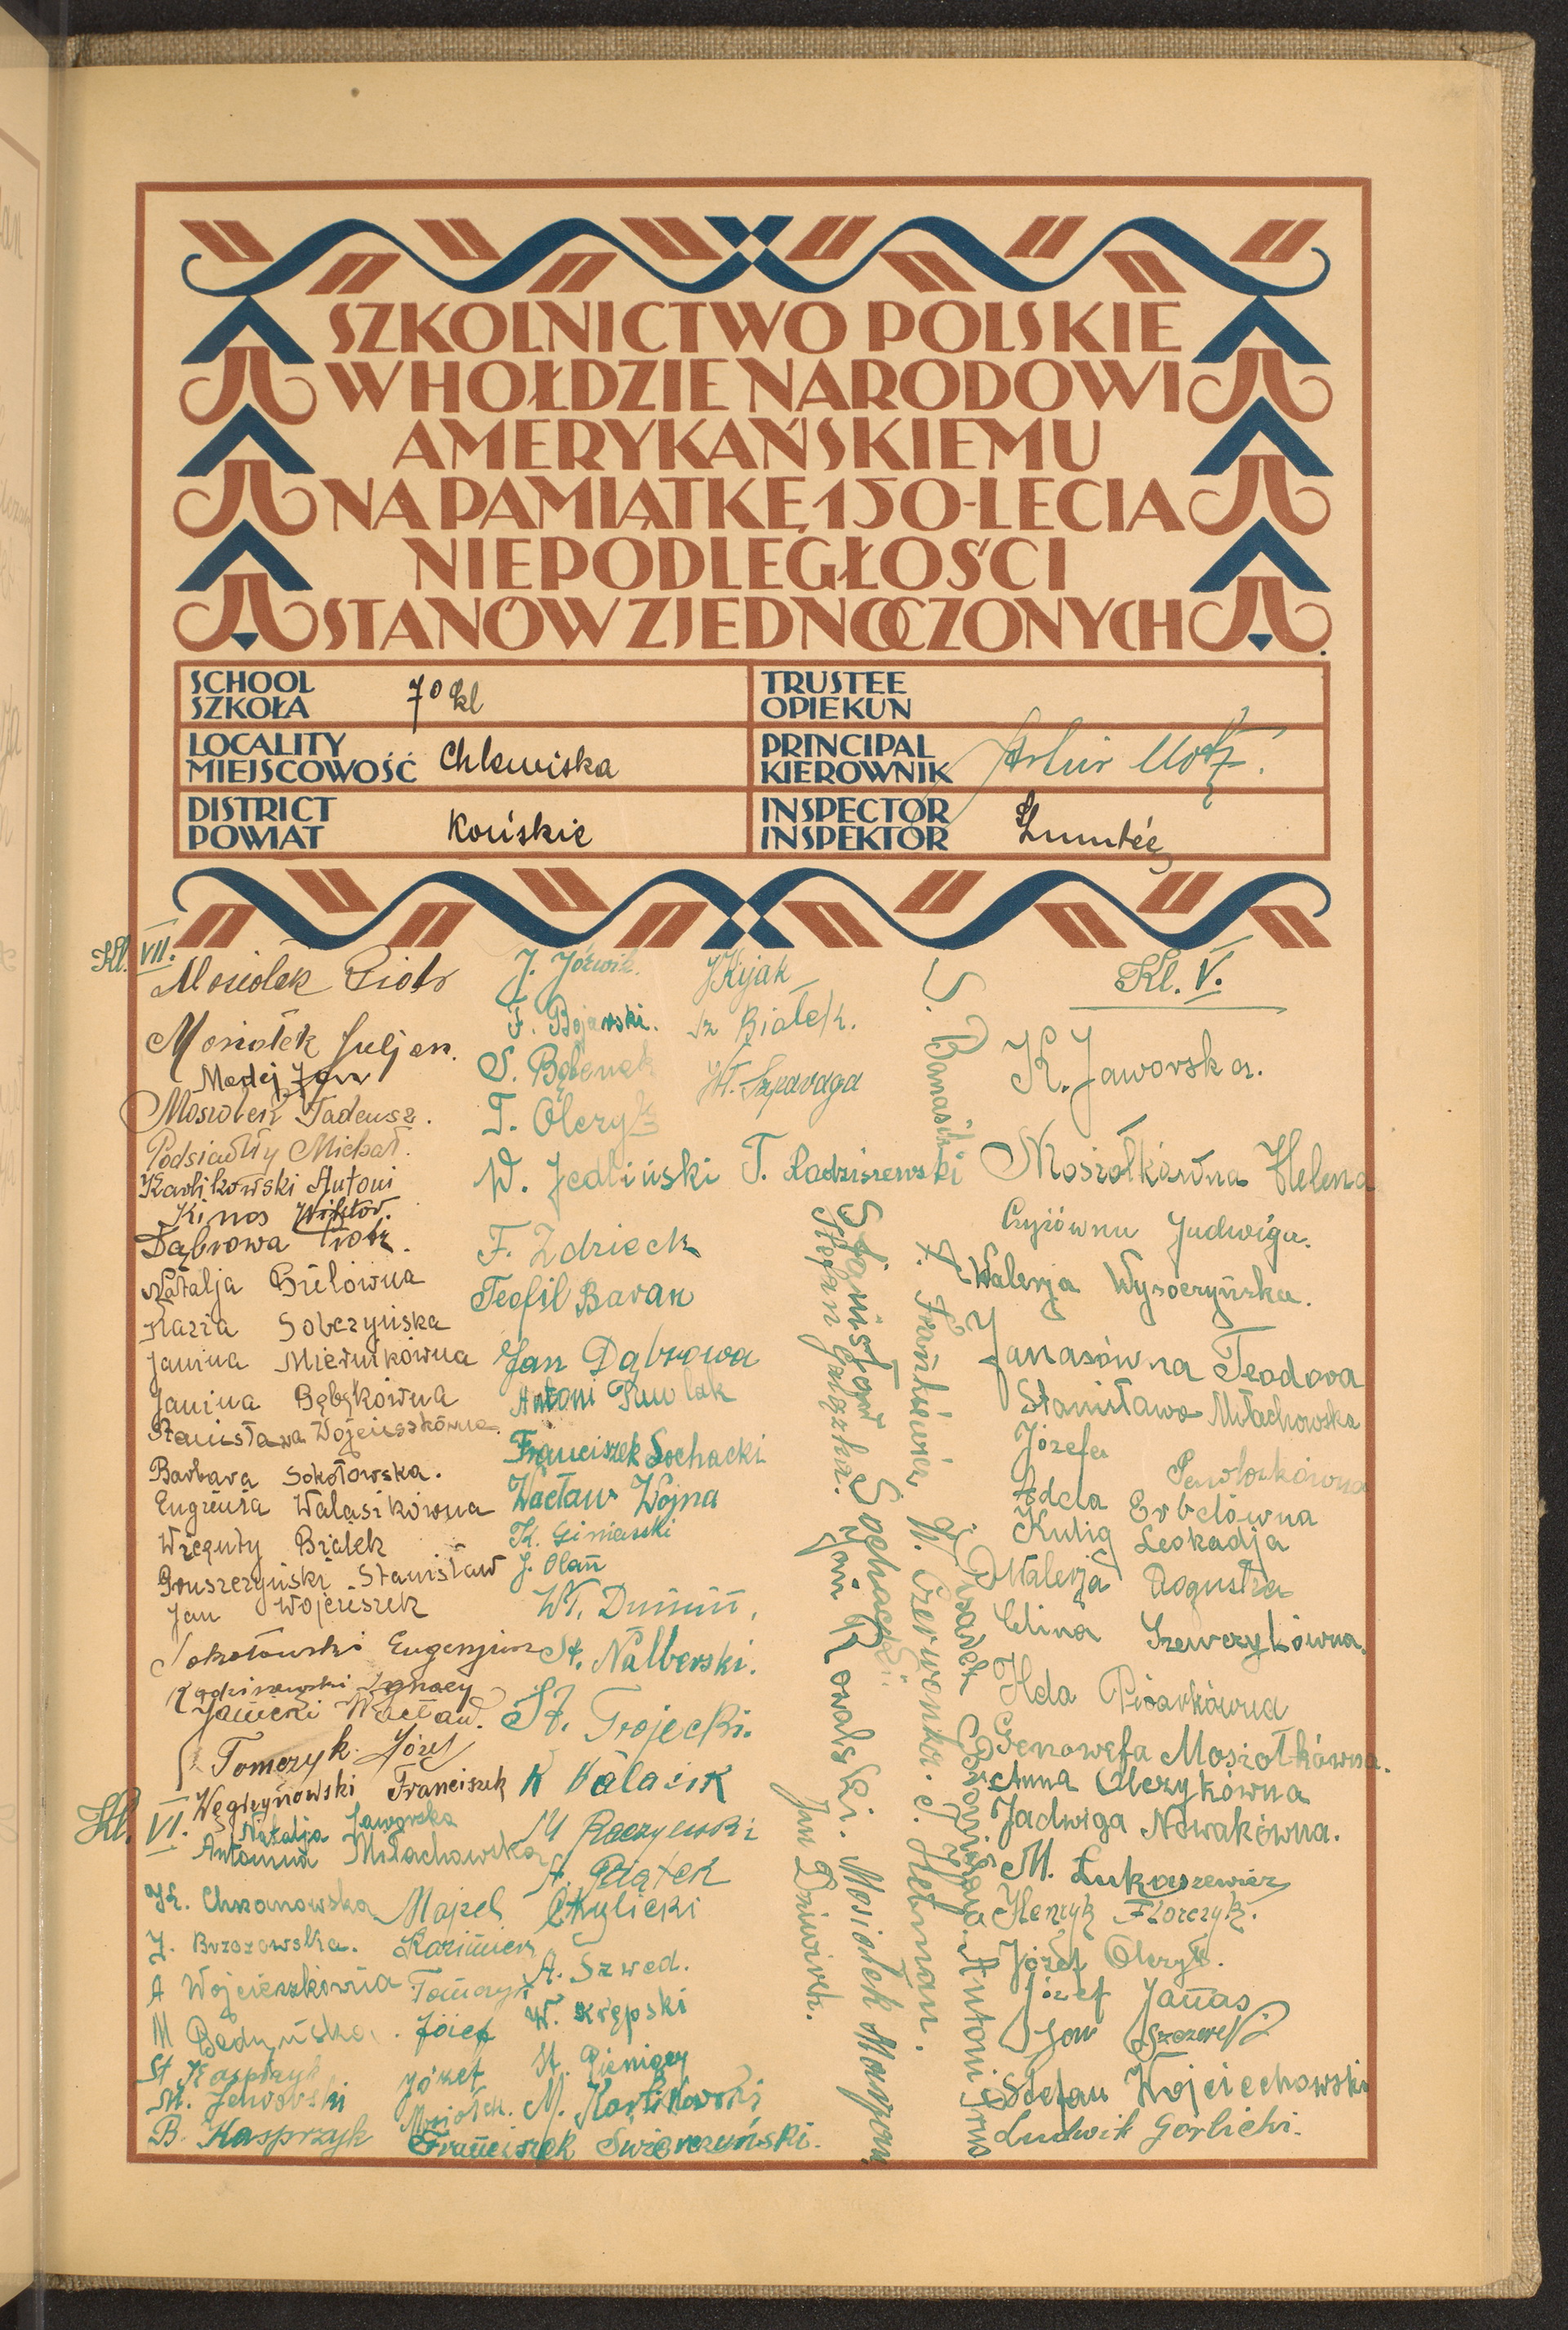 SZKOLNICTWO POLSKIE
W HOŁDZIE NARODOWI
AMERYKAŃSKIEMU
NA PAMIĄTKĘ 150-LECIA
NIEPODLEGŁOŚCI
STANÓW ZJEDNOCZONYCH
SCHOOL
SZKOŁA
7º kl
TRUSTEE
OPIEKUN
LOCALITY
MIEJSCOWOŚĆ
Chlewiska
PRINCIPAL
KIEROWNIK
Artur
DISTRICT
POWIAT
Końskie
INSPECTOR
INSPEKTOR
Kl. VII.
Mosiołek Piotr
Mosiołek Juljan.
Madej Jan
Mosiołek Tadeusz.
Podsiadły Michał.
Karlikowski Antoni
Kinos Wiktor.
Dąbrowa Piotr.
Natalja Grelówna
Kazia Sobczyńska
Janina Miernikówna
Janina Bąbskówna
Stanisława Wojcieszkówna
Barbara Sokołowska.
Eugenia Walasikówna
Białek
Gruszczyński Stanisław
Jan Wojcieszek
Sokołowski Eugenjusz
Ignacy
Janicki Wacław.
Tomczyk Józef
Węgrzynowski Franciszek
Kl. VI.
Natalja Jaworska
Antonina Młachowska
K. Chrzanowska
J. Brzozowska.
A Wojcieszkówna
M
St Kasprzyk
M. Jaworski
B. Kasprzyk
J. Jóźwik.
F. Bojarski.
S. Bąbenek
T. Olczyk
W. Jedliński
F. Zdziech
Teofil Baran
Jan Dąbrowa
Antoni Pawlak
Franciszek Sochacki
Wacław Wojna
K. Giniawski
J. Olań
Wł. Dumin.
St. Nalberski.
St. Trojecki.
K Walasik
M Raczyński
A. Piątek
Chylicki
A. Szwed.
W. Krępski
St. Pieniązy
M. Karlikowski
Majzel
Kazimierz
Tomczyk
Józef
Józef
Mosiołek.
Franciszek Świerczyński.
J Kijak
Sz Białek.
Wł. Szparaga
T. Radziszewski
S. Banasik
Stanisław Sochacki.
Stefan Gałązka.
Jan Kowalski. Mosiołek Marjan
Jan Dziwirek.
A. Frankiewicz, W. Czerwonka. S. Hetman.
J. Pisarek
Antoni Prus
Kl. V.
K. Jaworska.
Mosiołkówna Helena
Czyżówna Jadwiga.
Walerja Wysoczyńska.
Janasówna Teodora
Stanisława Młachowska
Józefa Pawlakówna
Adela Erbelówna
Kulig Leokadja
Walerja Rogusta
Celina Szewczykówna.
Ilda Pisarkówna
Genowefa Mosiołkówna.
Anna Olczykówna
Jadwiga Nowakówna.
M. Łukaszewicz
Henryk Florczyk.
Józef Olczyk.
Józef Janas
Jan
Stefan Wojciechowski
Ludwik Gorlicki.